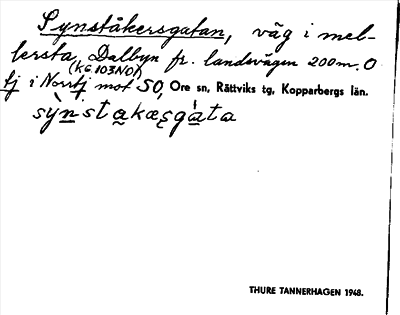 Synståkersgatan, väg i mel-
lersta Dalbyn fr. landsvägen 200m. O
(KG 103NO1)
tj i Norrtj mot SO, Ore sn, Rättviks tg, Kopparbergs län.
sỳnstakæsgata
THURE TANNERHAGEN 1948.